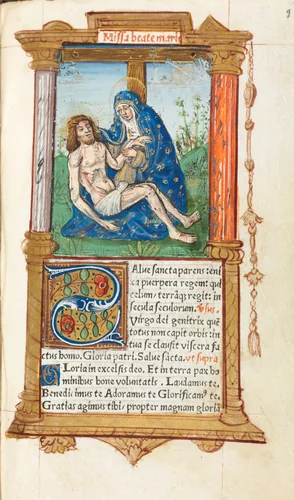 Missa beate marie
Salue sancta parens: eni
xa puerpera regem: qui
celum terrāq; regit: in
secula seculorum. Vsus.
Virgo dei genitrix quē
totus non capit orbis: in
tua se clausit viscera fa
ctus homo. Gloria patri. Salue sācta. vt supra
Gloria in excelsis deo. Et in terra pax ho
minibus bone voluntatis. Laudamus te.
Benedicimus te Adoramus te Glorificamꝰ te.
Gratias agimus tibi propter magnam gloriā